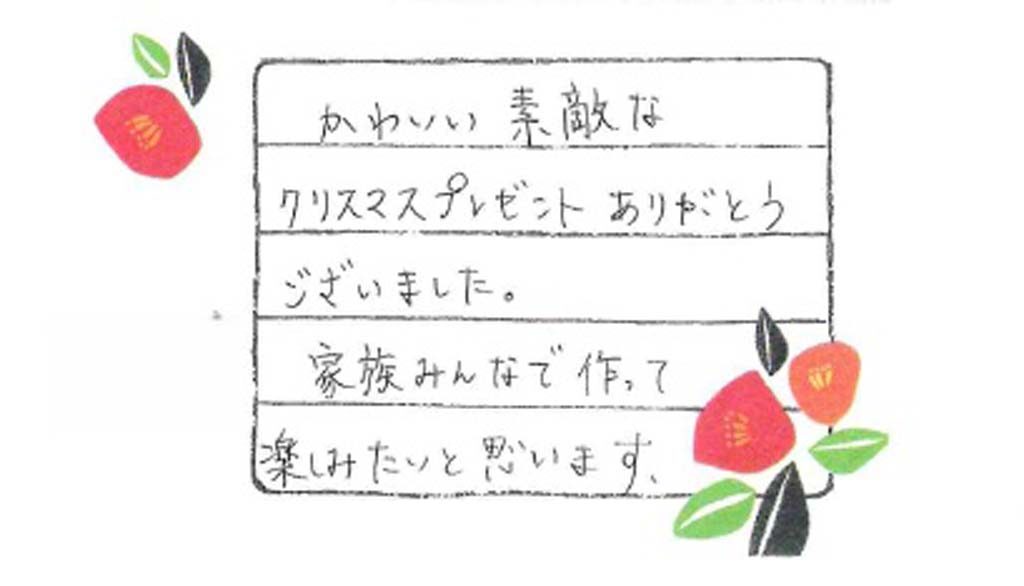 かわいい 素敵な
クリスマスプレゼント ありがとう
ございました。
家族みんなで 作って
楽しみたいと 思います、